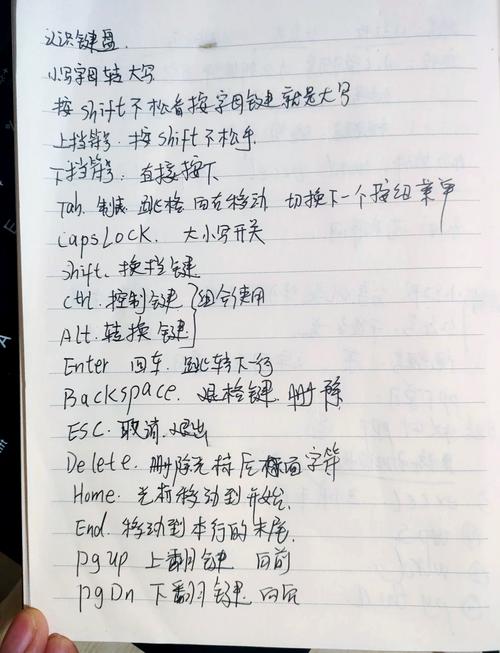 认识键盘.
小写字母转大写
按shift不松着按字母键就是大写
上挡符号. 按shift不松手.
下挡符号: 直接按下
Tab. 制表 跳格 向右移动 切换下一个按钮 菜单
CapsLOCK. 大小写开关
shift. 换挡键
Ctrl. 控制键 } 组合使用
Alt. 转换键
Enter 回车. 跳转下一行
Backspace. 退格键. 删除
ESC. 取消. 退出
Delete. 删除光标后面字符
Home. 光标移动到开始.
End. 移动到本行的末尾.
pgup 上翻键 向前
pgDn 下翻键 向后